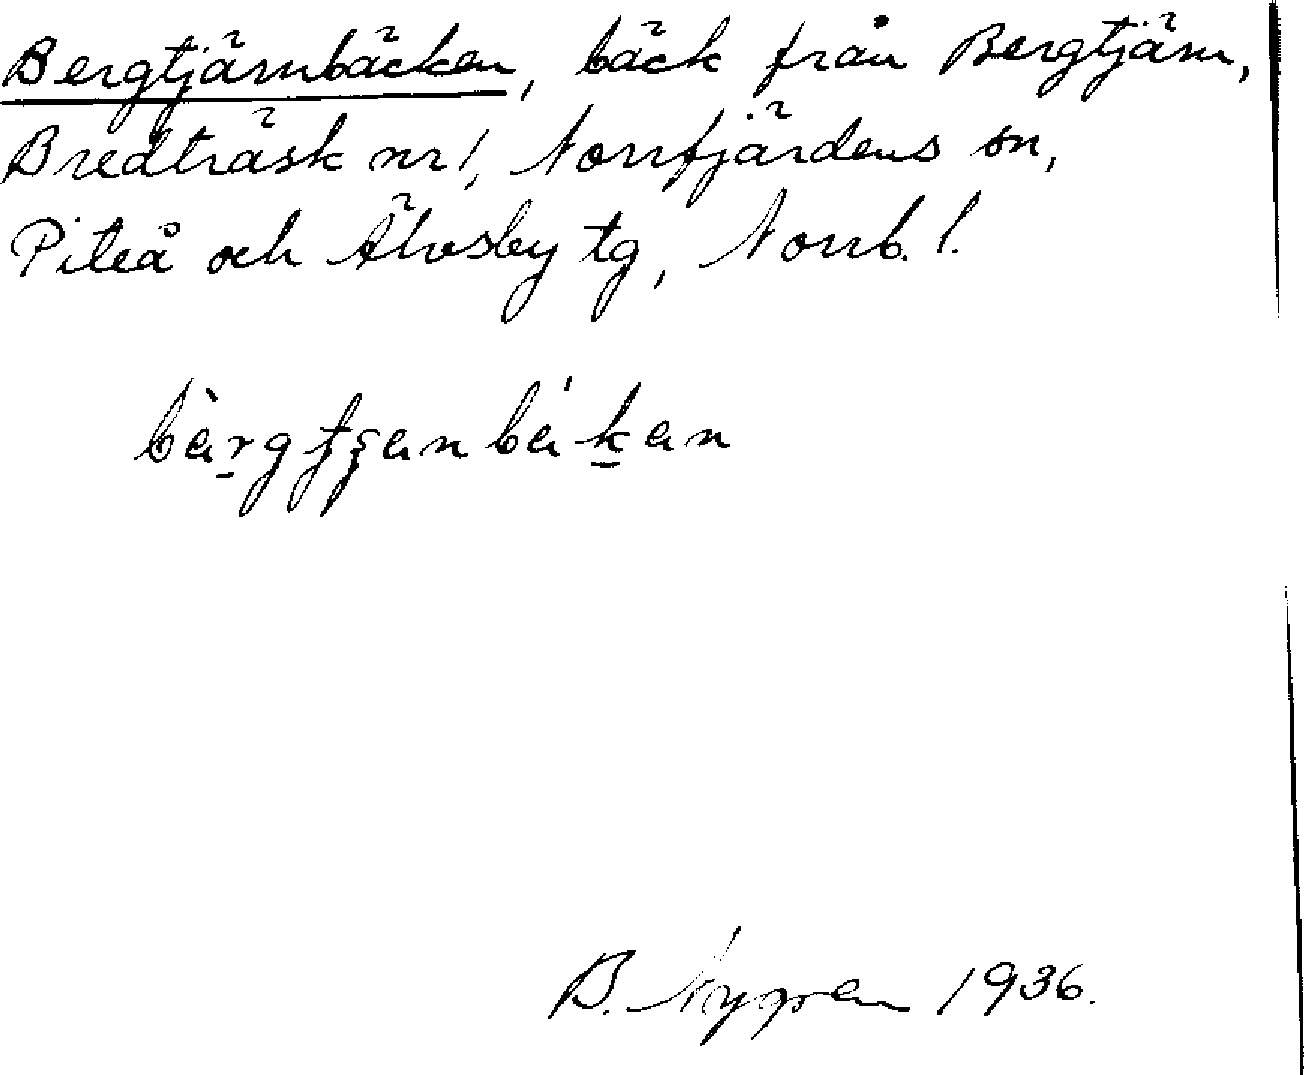 Bergtjärnbäcken, bäck från Bergtjärn,
Bredträsk nr 1, Norrfjärdens sn,
Piteå och Älvsby tg, Norrb. l.
B. Nygren 1936.